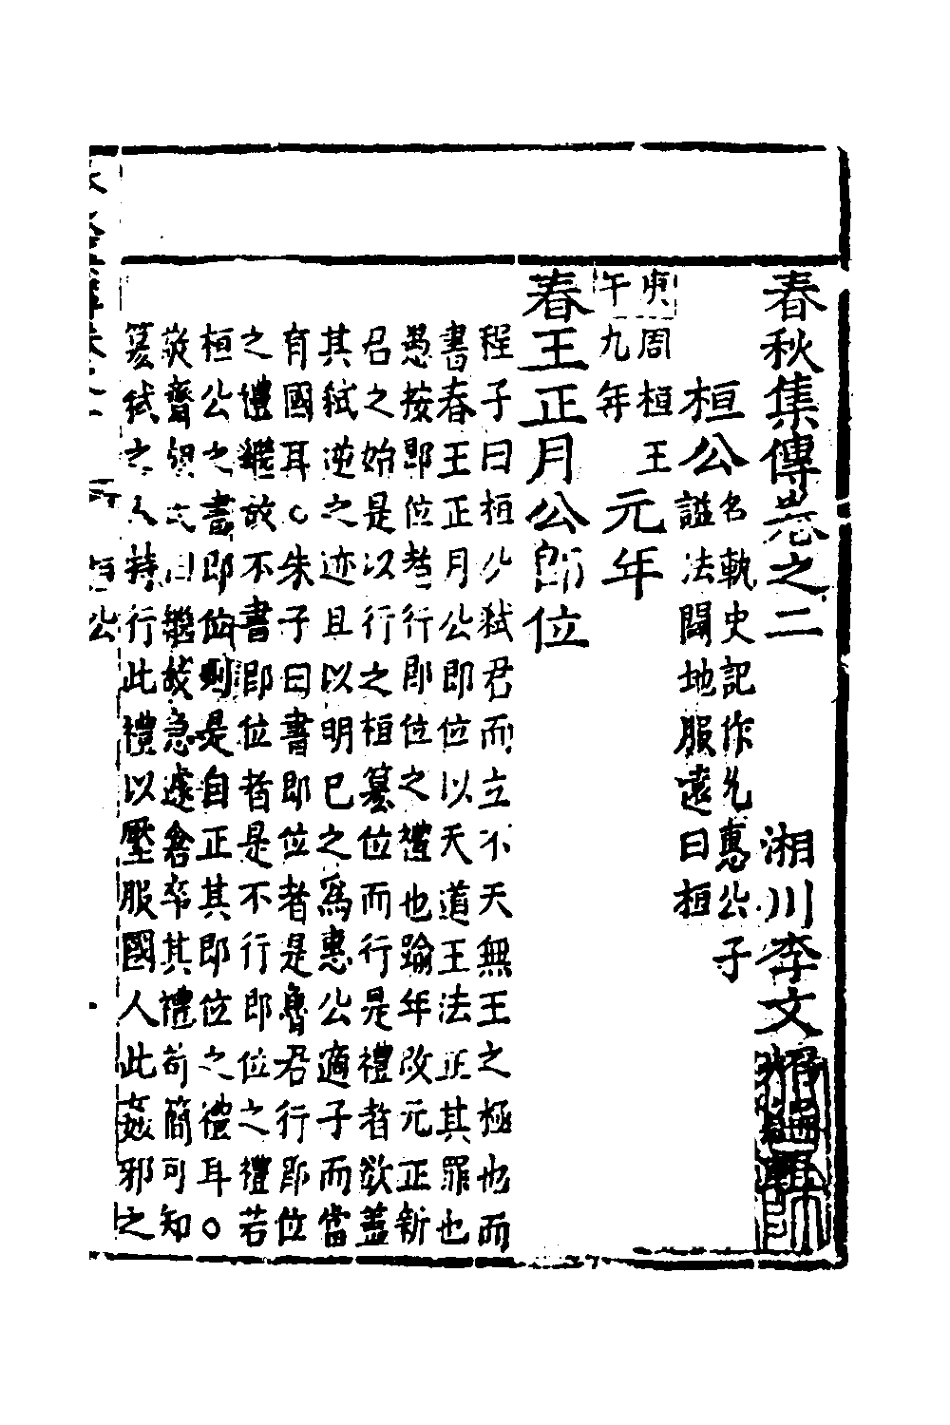 春秋集傳卷之二
湘川李文
桓公
名軌史記作允惠公子
謚法闢地服遠曰桓
元年
周桓王
午九年
春王正月公即位
程子曰桓公弑君而立不天無王之極也而
書春王正月公即位以天道王法正其罪也
愚按即位者行即位之禮也踰年改元正新
君之始是以行之桓簒位而行是禮者欲蓋
其弑逆之迹且以明已之爲惠公適子而當
有國耳○朱子曰書即位者是魯君行即位
之禮繼故不書即位者是不行即位之禮若
桓公之書即位則是自正其即位之禮耳○
齊曰繼故急遽倉卒其禮苟簡可知
簒弑之人特行此禮以壓服國人此姦邪之
桓公